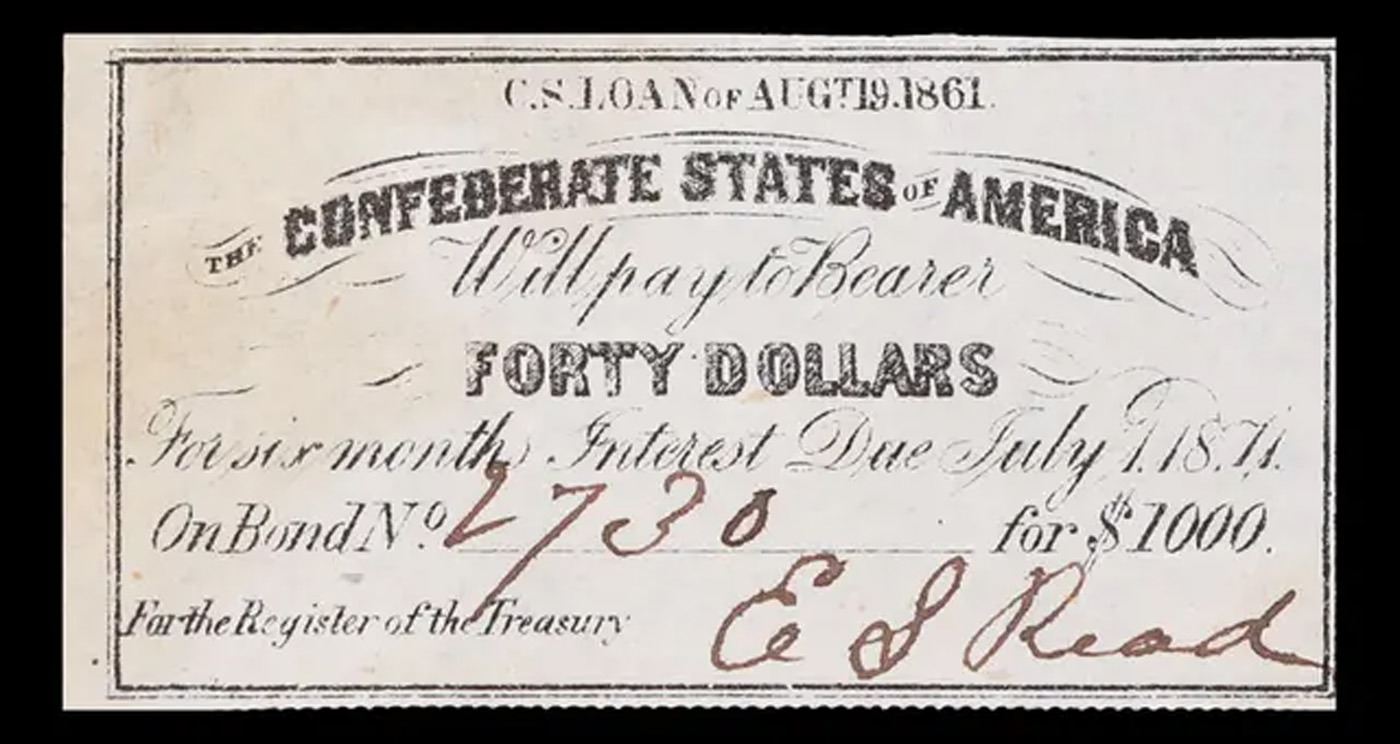 C.S. LOAN OF AUGT 19.1861.
THE CONFEDERATE STATES OF AMERICA
Will pay to Bearer
FORTY DOLLARS
For six months Interest Due July 1. 18.71.
On Bond No. 2730 for $1000.
For the Register of the Treasury E S Read